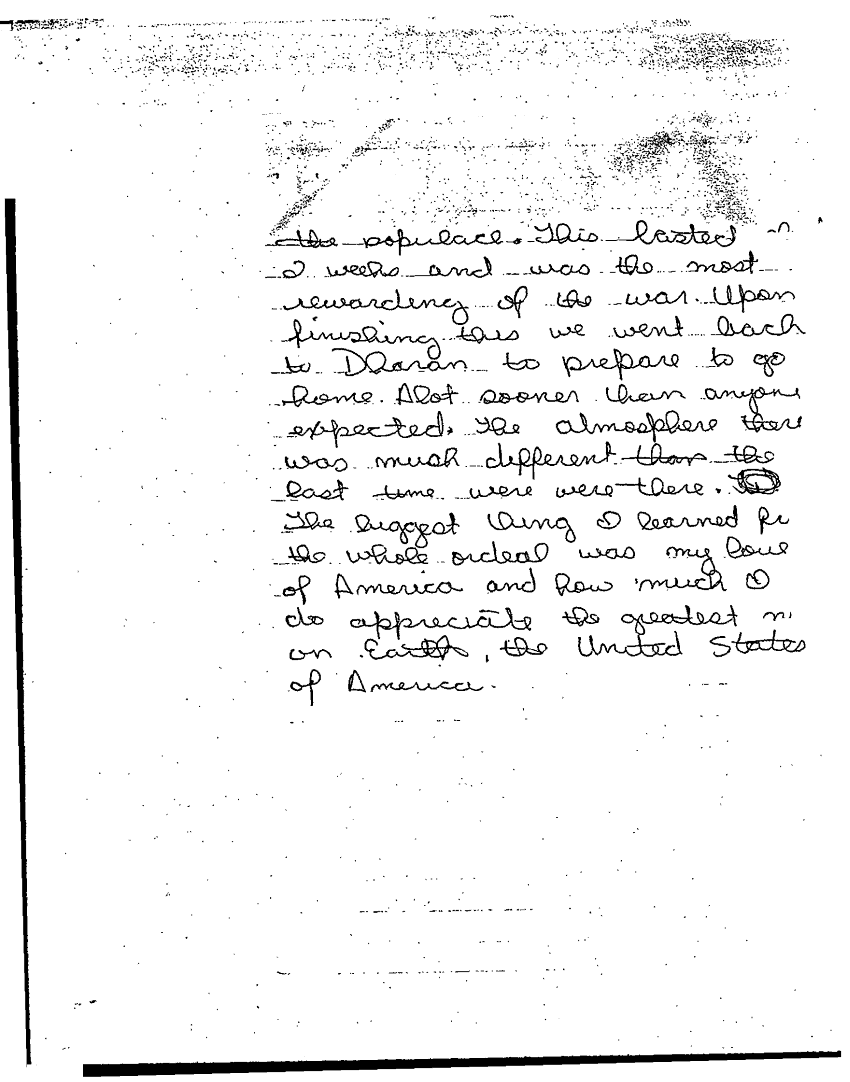 the populace. This lasted
2 weeks and was the most
rewarding of the war. Upon
finishing this we went back
to Dharan to prepare to go
home. Alot sooner than anyone
expected. The atmosphere there
was much different than the
last time were were there.
The biggest thing I learned
the whole ordeal was my love
of America and how much I
do appreciate the greatest
on Earth, the United States
of America.